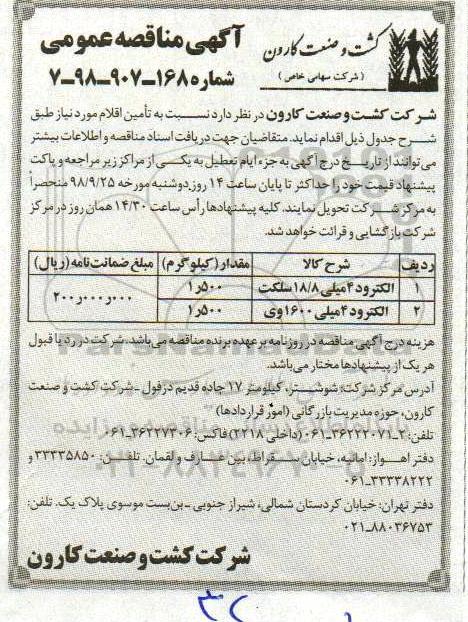 کشت و صنعت کارون
( شرکت سهامی خاص )
آگهی مناقصه عمومی
شماره ۱۶۸-۹۰۷-۹۸-۷
شرکت کشت و صنعت کارون در نظر دارد نسبت به تأمین اقلام مورد نیاز طبق
شرح جدول ذیل اقدام نماید. متقاضیان جهت دریافت اسناد مناقصه و اطلاعات بیشتر
می‌توانند از تاریخ درج آگهی به جزء ایام تعطیل به یکی از مراکز زیر مراجعه و پاکت
پیشنهاد قیمت خود را حداکثر تا پایان ساعت ۱۴ روز دوشنبه مورخه ۹۸/۹/۲۵ منحصراً
به مرکز شرکت تحویل نمایند. کلیه پیشنهادها رأس ساعت ۱۴/۳۰ همان روز در مرکز
شرکت بازگشایی و قرائت خواهد شد.
ردیف شرح کالا مقدار (کیلوگرم) مبلغ ضمانت‌نامه (ریال)
۱ الکترود ۴ میلی ۱۸/۸ سلکت ۱ر۵۰۰
۲۰۰ر۰۰۰ر۰۰۰
۲ الکترود ۴ میلی ۱۶۰۰ وی ۱ر۵۰۰
هزینه درج آگهی مناقصه در روزنامه بر عهده برنده مناقصه می‌باشد. شرکت در رد یا قبول
هر یک از پیشنهادها مختار می‌باشد.
آدرس مرکز شرکت: شوشتر، کیلومتر ۱۷ جاده قدیم دزفول - شرکت کشت و صنعت
کارون، حوزه مدیریت بازرگانی (امور قراردادها)
تلفن: ۲-۳۶۲۲۲۰۷۱-۰۶۱ (داخلی ۲۲۱۸) فاکس: ۳۶۲۲۷۳۰۶-۰۶۱
دفتر اهواز: امانیه، خیابان سقراط، بین عارف و لقمان. تلفن: ۳۳۳۳۵۸۵۰ و
۳۳۳۳۸۲۲۲-۰۶۱
دفتر تهران: خیابان کردستان شمالی، شیراز جنوبی - بن‌بست موسوی پلاک یک. تلفن:
۸۸۰۳۶۷۵۳-۰۲۱
شرکت کشت و صنعت کارون
۳۲